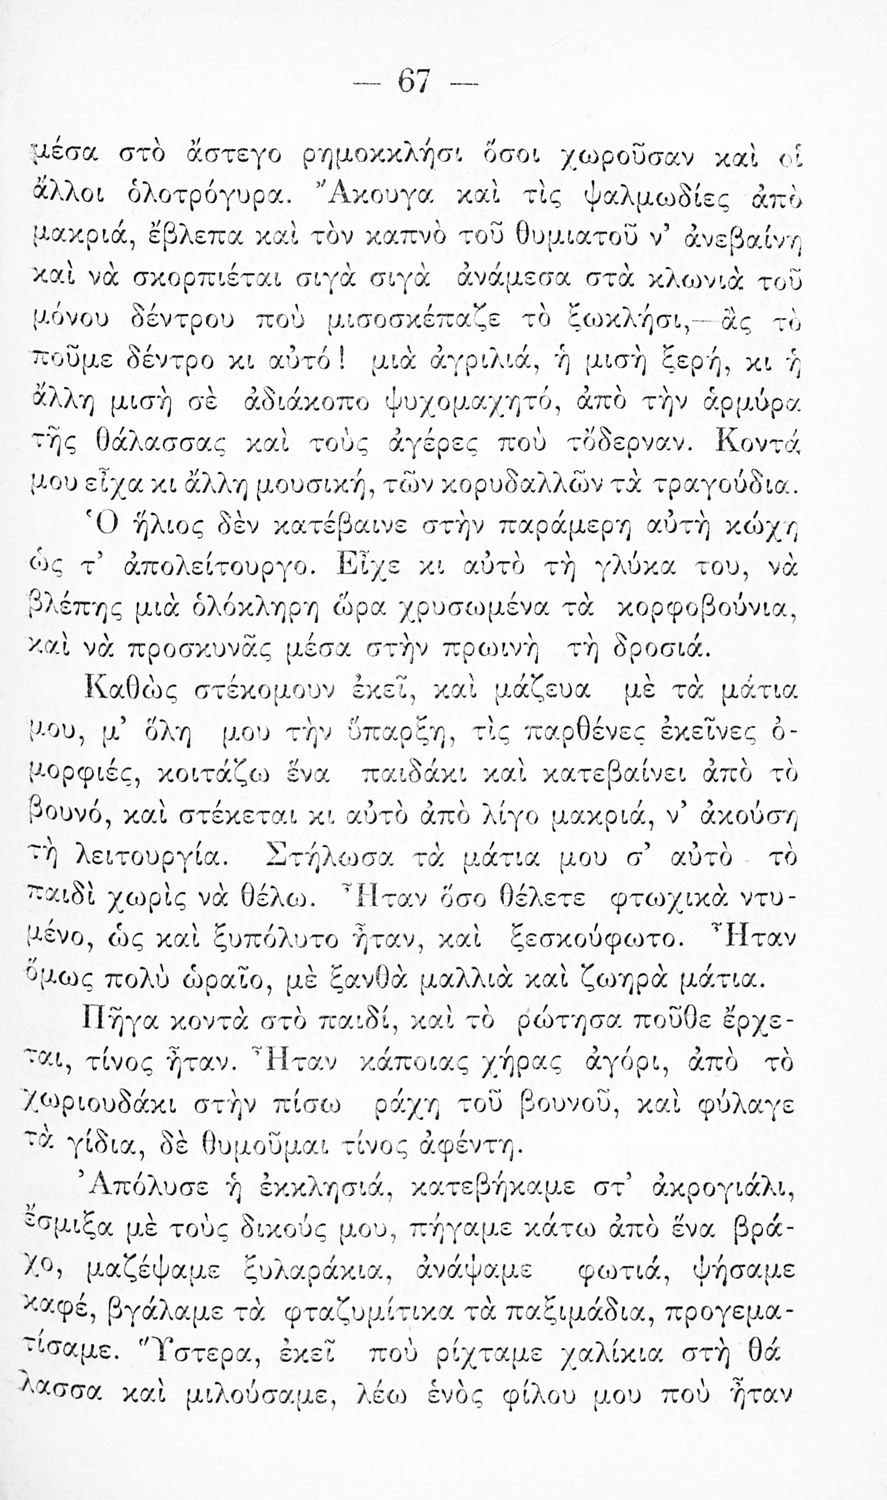 — 67 —
μέσα στὸ ἄστεγο ρημοκκλήσι ὅσοι χωροῦσαν καὶ οἱ
ἄλλοι ὁλοτρόγυρα. Ἄκουγα καὶ τὶς ψαλμωδίες ἀπὸ
μακριά, ἔβλεπα καὶ τὸν καπνὸ τοῦ θυμιατοῦ ν’ ἀνεβαίνῃ
καὶ νὰ σκορπιέται σιγὰ σιγὰ ἀνάμεσα στὰ κλωνιὰ τοῦ
μόνου δέντρου ποὺ μισοσκέπαζε τὸ ξωκλήσι,—ἂς τὸ
ποῦμε δέντρο κι αὐτό! μιὰ ἀγριλιά, ἡ μισὴ ξερή, κι ἡ
ἄλλη μισὴ σὲ ἀδιάκοπο ψυχομαχητό, ἀπὸ τὴν ἁρμύρα
τῆς θάλασσας καὶ τοὺς ἀγέρες ποὺ τὄδερναν. Κοντά
μου εἶχα κι ἄλλη μουσική, τῶν κορυδαλλῶν τὰ τραγούδια.
Ὁ ἥλιος δὲν κατέβαινε στὴν παράμερη αὐτὴ κώχη
ὡς τ’ ἀπολείτουργο. Εἶχε κι αὐτὸ τὴ γλύκα του, νὰ
βλέπῃς μιὰ ὁλόκληρη ὥρα χρυσωμένα τὰ κορφοβούνια,
καὶ νὰ προσκυνᾷς μέσα στὴν πρωινὴ τὴ δροσιά.
Καθὼς στέκομουν ἐκεῖ, καὶ μάζευα μὲ τὰ μάτια
μου, μ’ ὅλη μου τὴν ὕπαρξη, τὶς παρθένες ἐκεῖνες ὀ-
μορφιές, κοιτάζω ἕνα παιδάκι καὶ κατεβαίνει ἀπὸ τὸ
βουνό, καὶ στέκεται κι αὐτὸ ἀπὸ λίγο μακριά, ν’ ἀκούσῃ
τὴ λειτουργία. Στήλωσα τὰ μάτια μου σ’ αὐτὸ τὸ
παιδὶ χωρὶς νὰ θέλω. Ἦταν ὅσο θέλετε φτωχικὰ ντυ-
μένο, ὡς καὶ ξυπόλυτο ἦταν, καὶ ξεσκούφωτο. Ἦταν
ὅμως πολὺ ὡραῖο, μὲ ξανθὰ μαλλιὰ καὶ ζωηρὰ μάτια.
Πῆγα κοντὰ στὸ παιδί, καὶ τὸ ρώτησα ποῦθε ἔρχε-
ται, τίνος ἦταν. Ἦταν κάποιας χήρας ἀγόρι, ἀπὸ τὸ
χωριουδάκι στὴν πίσω ράχη τοῦ βουνοῦ, καὶ φύλαγε
τὰ γίδια, δὲ θυμοῦμαι τίνος ἀφέντη.
Ἀπόλυσε ἡ ἐκκλησιά, κατεβήκαμε στ’ ἀκρογιάλι,
ἔσμιξα μὲ τοὺς δικούς μου, πήγαμε κάτω ἀπὸ ἕνα βρά-
χο, μαζέψαμε ξυλαράκια, ἀνάψαμε φωτιά, ψήσαμε
καφέ, βγάλαμε τὰ φταζυμίτικα τὰ παξιμάδια, προγεμα-
τίσαμε. Ὕστερα, ἐκεῖ ποὺ ρίχταμε χαλίκια στὴ θά
λασσα καὶ μιλούσαμε, λέω ἑνὸς φίλου μου ποὺ ἦταν